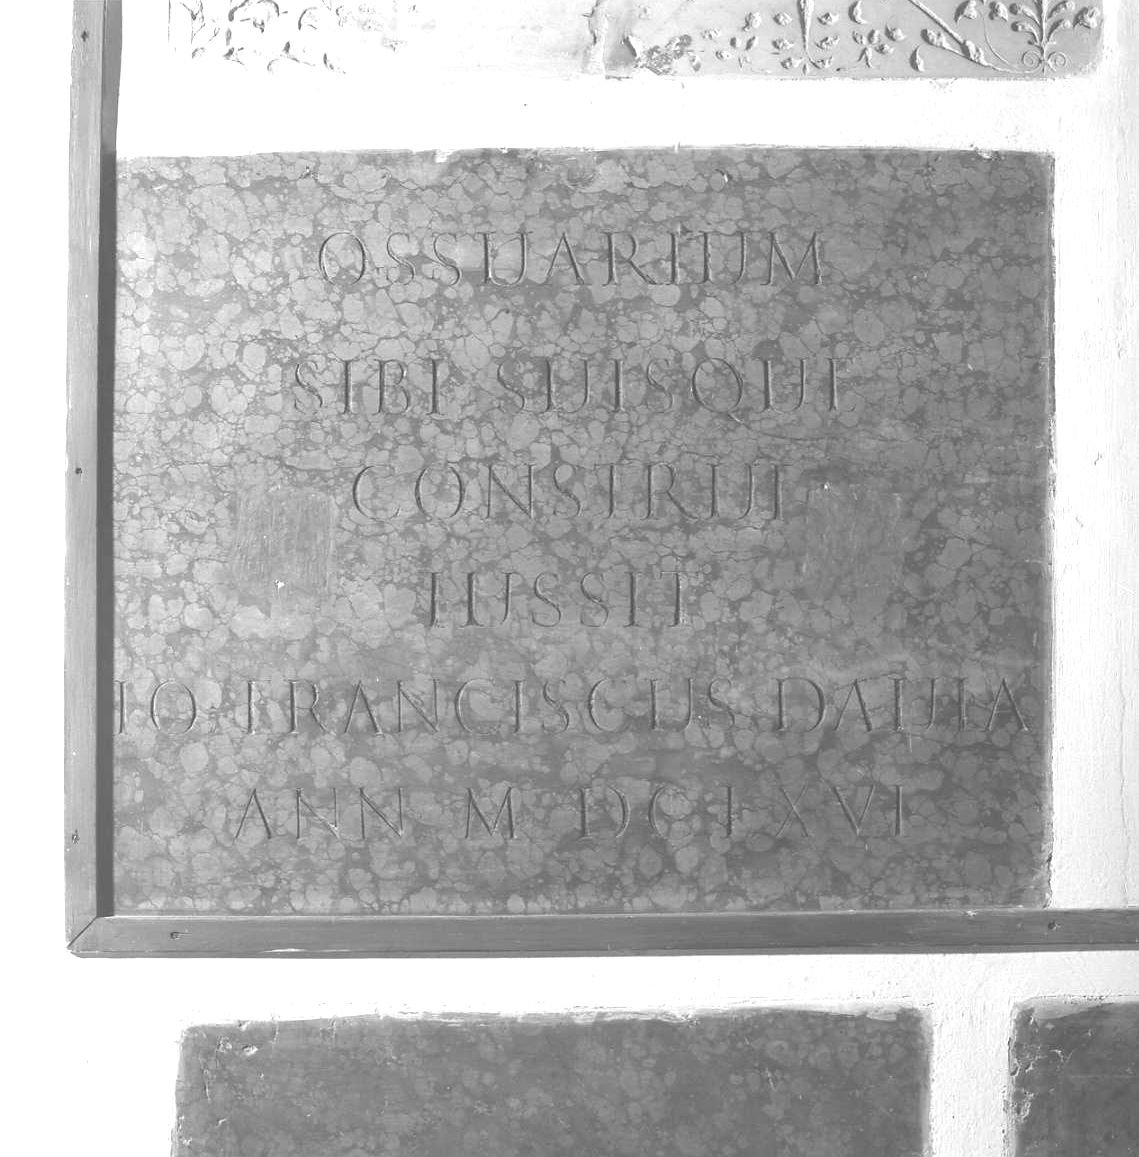 OSSUARIUM
SIBI SUISQUE
CONSTRUI
IUSSIT
IO FRANCISCUS DAIUIA
ANN M DCIXVI